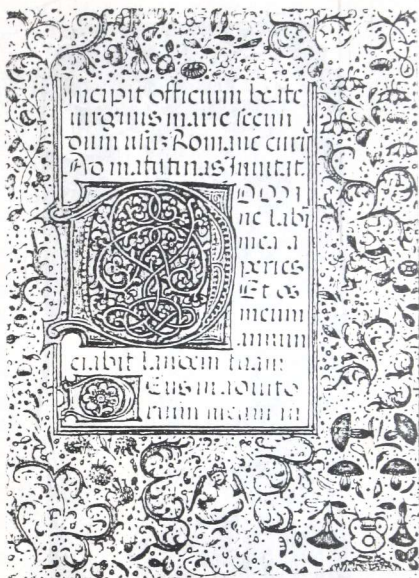 Incipit officium beate
virginis marie secun
dum usuz Romane curi
Ad matutinas Invitat.
DOmi
ne labi
mea a
peries
Et os
meum
annun
ciabit laudem tuam
Deus in adiuto
rium meum in